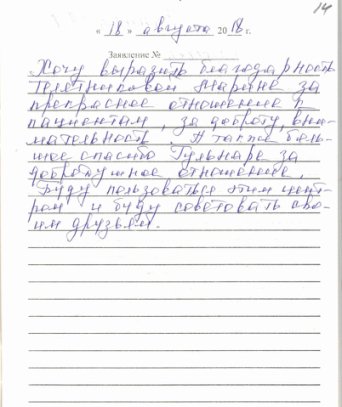 14
« 18 » августа 2018 г.
Заявление №
Хочу выразить благодарность
Телятниковой Марине за
прекрасное отношение к
пациентам, за доброту, вни-
мательность. А также боль-
шое спасибо Гульнаре за
добродушное отношение.
Буду пользоваться этим цент-
ром и буду советовать сво-
им друзьям.